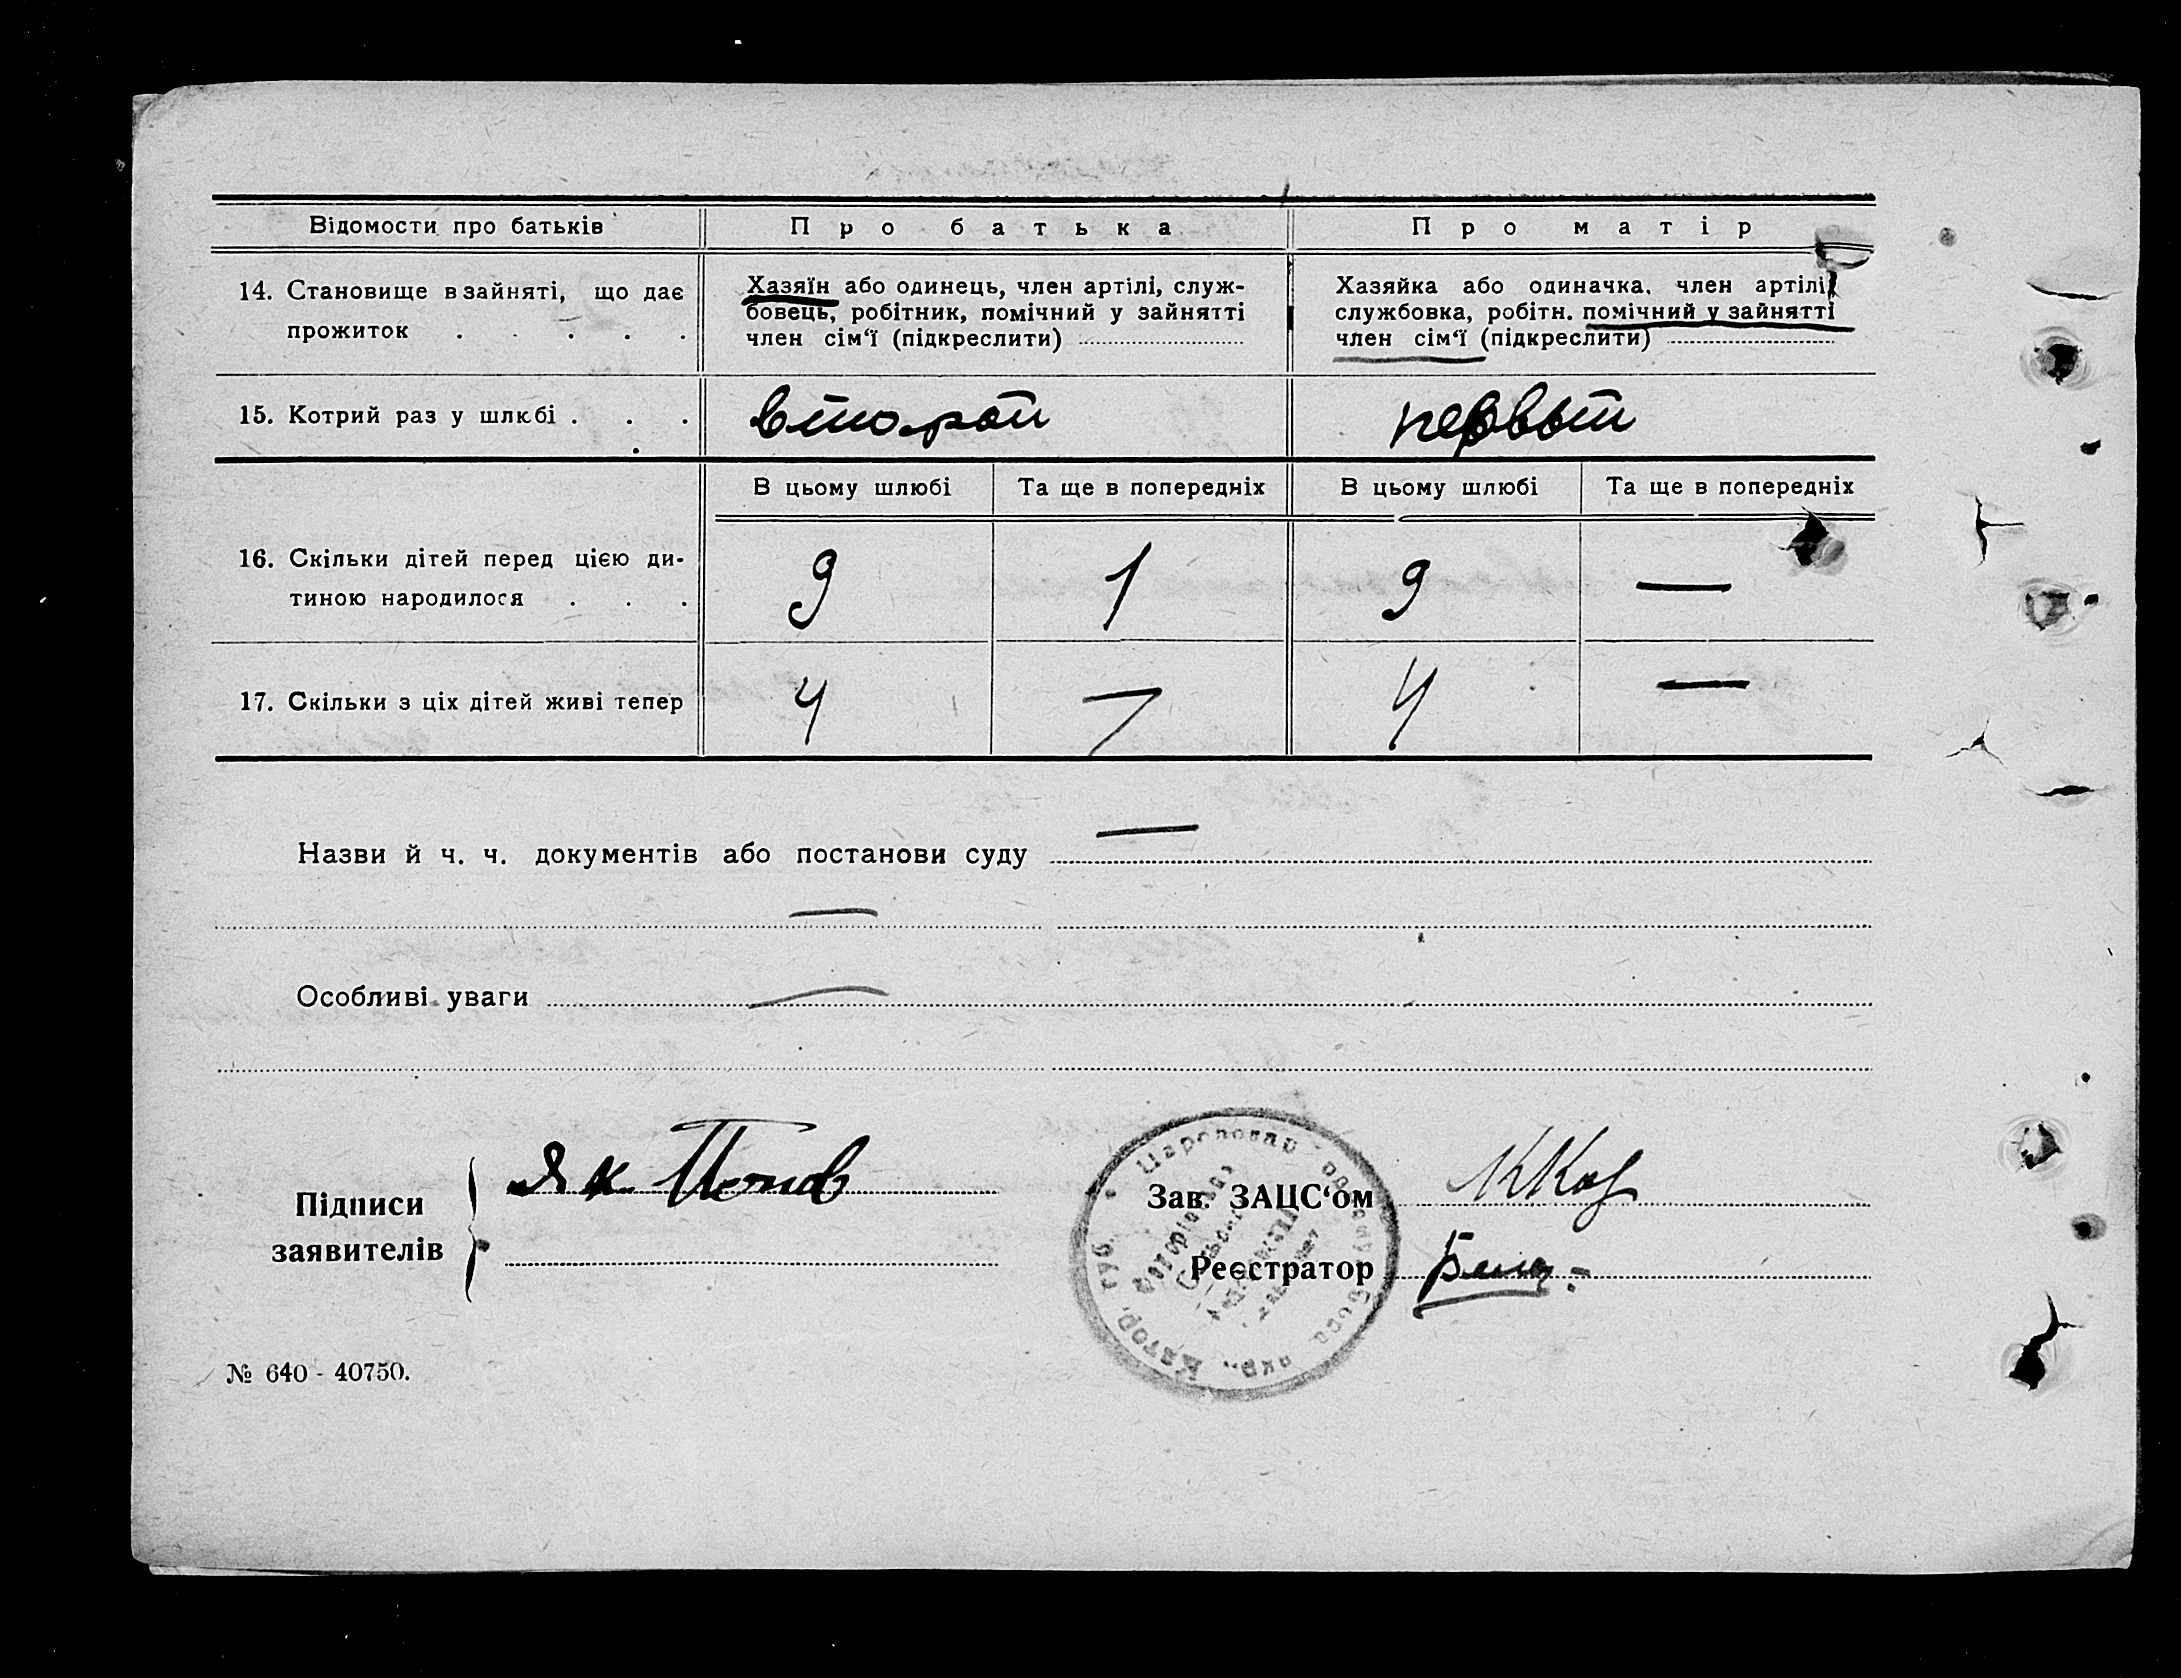 Відомости про батьків
Про батька
Про матір
14. Становище в зайняті, що дає
прожиток . . . . .
Хазяїн або одинець, член артілі, служ-
бовець, робітник, помічний у зайнятті
член сім‘ї (підкреслити)
Хазяйка або одиначка, член артілі
службовка, робітн. помічний у зайнятті
член сім‘ї (підкреслити)
15. Котрий раз у шлюбі . . .
второй
первый
В цьому шлюбі
Та ще в попередніх
В цьому шлюбі
Та ще в попередніх
16. Скільки дітей перед цією ди-
тиною народилося . . .
9
1
9
—
17. Скільки з ціх дітей живі тепер
4
—
4
—
Назви й ч. ч. документів або постанови суду —
—
Особливі уваги —
Підписи
заявителів
Як Попов
Зав. ЗАЦС‘ом
Реєстратор
Катор. губ.
окр.
№ 640 - 40750.